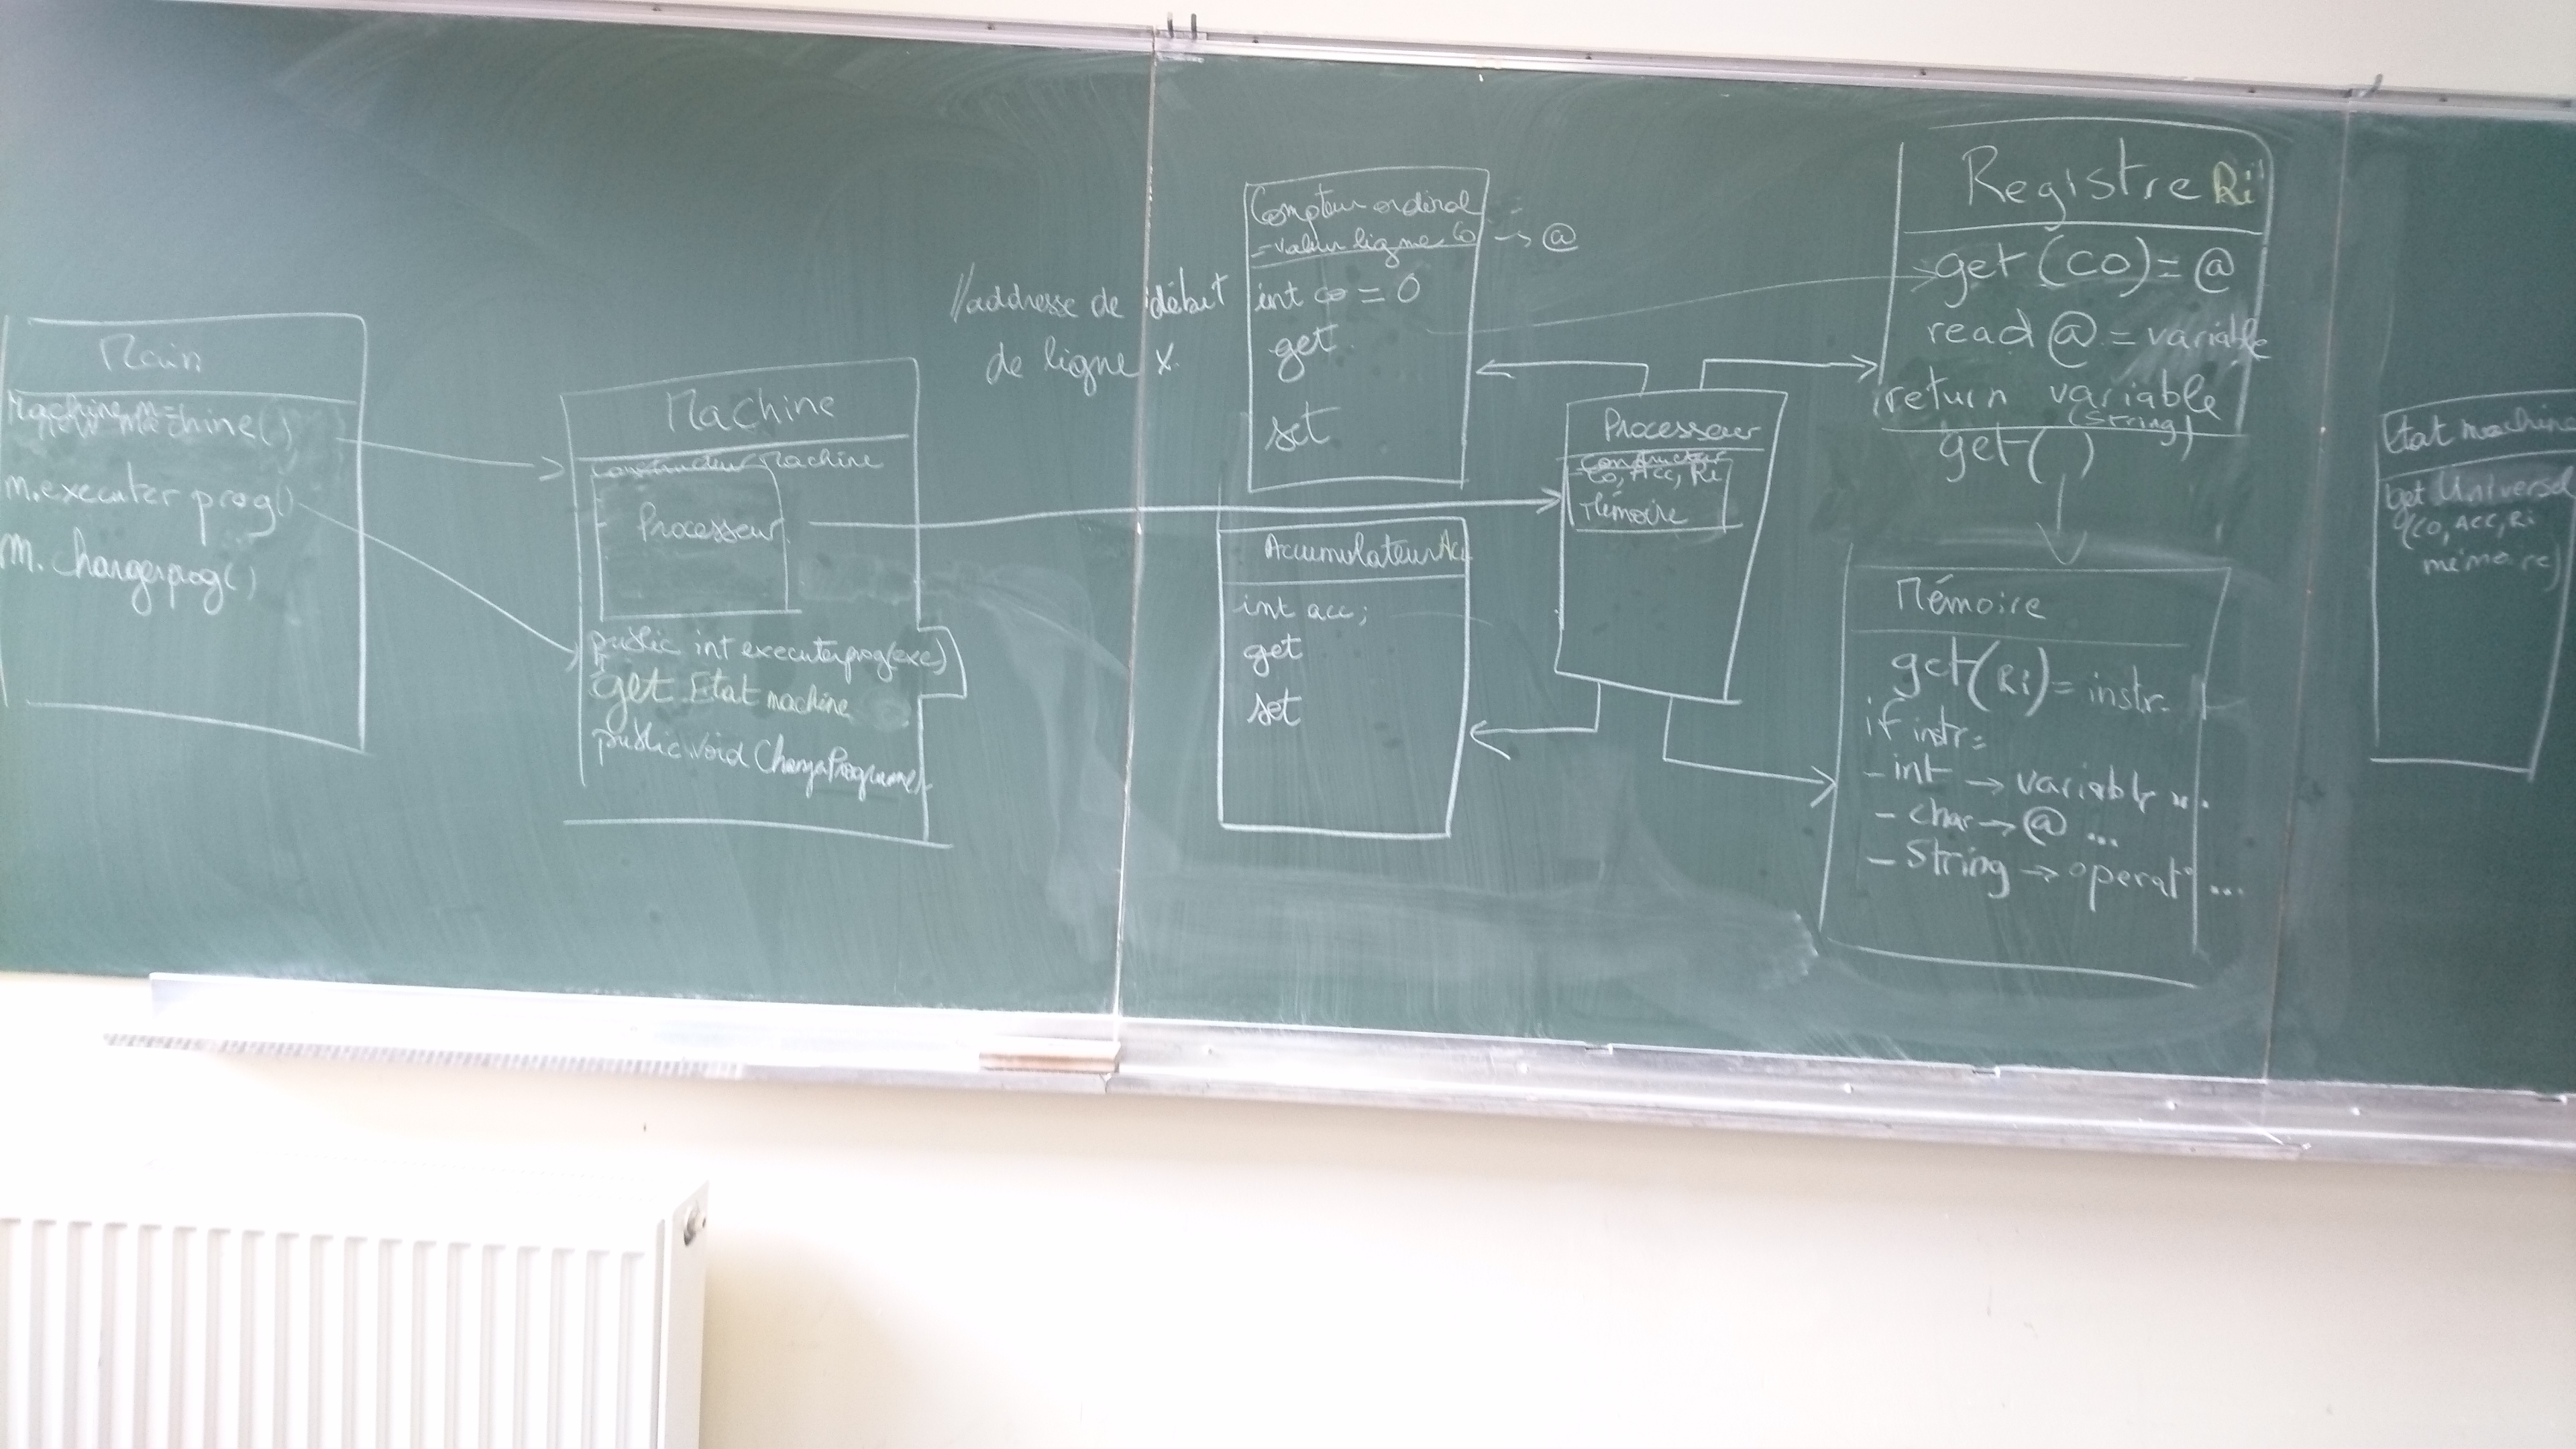 Main
Machine m =
new machine();
m.executer prog()
m. chargerprog()
Machine
Constructeur machine
Processeur
public int executerprog(exe)
get Etat machine
public void ChargerProgramme
//addresse de début
de ligne x.
Compteur ordinal
= valeur ligne Co → @
int co = 0
get
set
Accumulateur Acc
int acc;
get
set
Processeur
Constructeur
Co, Acc, Ri
Mémoire
Registre Ri
get(CO) = @
read @ = variable
return variable
(String)
get()
Mémoire
get(Ri) = instr.
if instr =
- int → variable ...
- char → @ ...
- String → operat° ...
Etat machine
get Universel
(CO, ACC, Ri
mémoire)